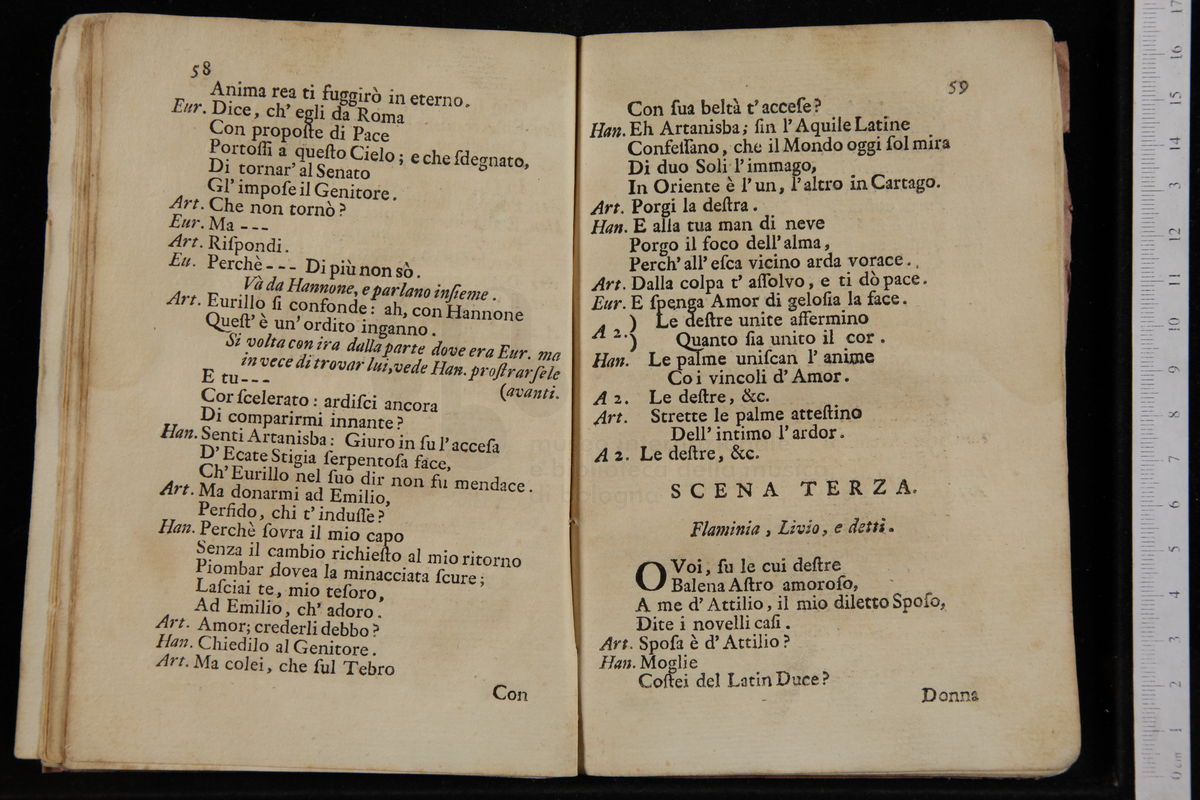 58
Anima rea ti fuggirò in eterno.
Eur. Dice, ch' egli da Roma
Con propoſte di Pace
Portoſſi a queſto Cielo; e che ſdegnato,
Di tornar' al Senato
Gl' impoſe il Genitore.
Art. Che non tornò?
Eur. Ma ---
Art. Riſpondi.
Eu. Perchè --- Di più non sò.
Và da Hannone, e parlano inſieme.
Art. Eurillo ſi confonde: ah, con Hannone
Queſt' è un' ordito inganno.
Si volta con ira dalla parte dove era Eur. ma
in vece di trovar lui, vede Han. proſtrarſele
E tu---
(avanti.
Cor ſcelerato: ardiſci ancora
Di comparirmi innante?
Han. Senti Artanisba: Giuro in ſu l' acceſa
D' Ecate Stigia ſerpentoſa face,
Ch' Eurillo nel ſuo dir non fu mendace.
Art. Ma donarmi ad Emilio,
Perfido, chi t' induſſe?
Han. Perchè ſovra il mio capo
Senza il cambio richieſto al mio ritorno
Piombar dovea la minacciata ſcure;
Laſciai te, mio teſoro,
Ad Emilio, ch' adoro.
Art. Amor; crederli debbo?
Han. Chiedilo al Genitore.
Art. Ma colei, che ſul Tebro
Con
59
Con ſua beltà t' acceſe?
Han. Eh Artanisba; ſin l' Aquile Latine
Confeſſano, che il Mondo oggi ſol mira
Di duo Soli l' immago,
In Oriente è l' un, l' altro in Cartago.
Art. Porgi la deſtra.
Han. E alla tua man di neve
Porgo il foco dell' alma,
Perch' all' eſca vicino arda vorace.
Art. Dalla colpa t' aſſolvo, e ti dò pace.
Eur. E ſpenga Amor di geloſia la face.
A 2. ) Le deſtre unite affermino
) Quanto ſia unito il cor.
Han. Le palme uniſcan l' anime
Co i vincoli d' Amor.
A 2. Le deſtre, &c.
Art. Strette le palme atteſtino
Dell' intimo l' ardor.
A 2. Le deſtre, &c.
SCENA TERZA.
Flaminia, Livio, e detti.
O Voi, ſu le cui deſtre
Balena Aſtro amoroſo,
A me d' Attilio, il mio diletto Spoſo,
Dite i novelli caſi.
Art. Spoſa è d' Attilio?
Han. Moglie
Coſtei del Latin Duce?
Donna